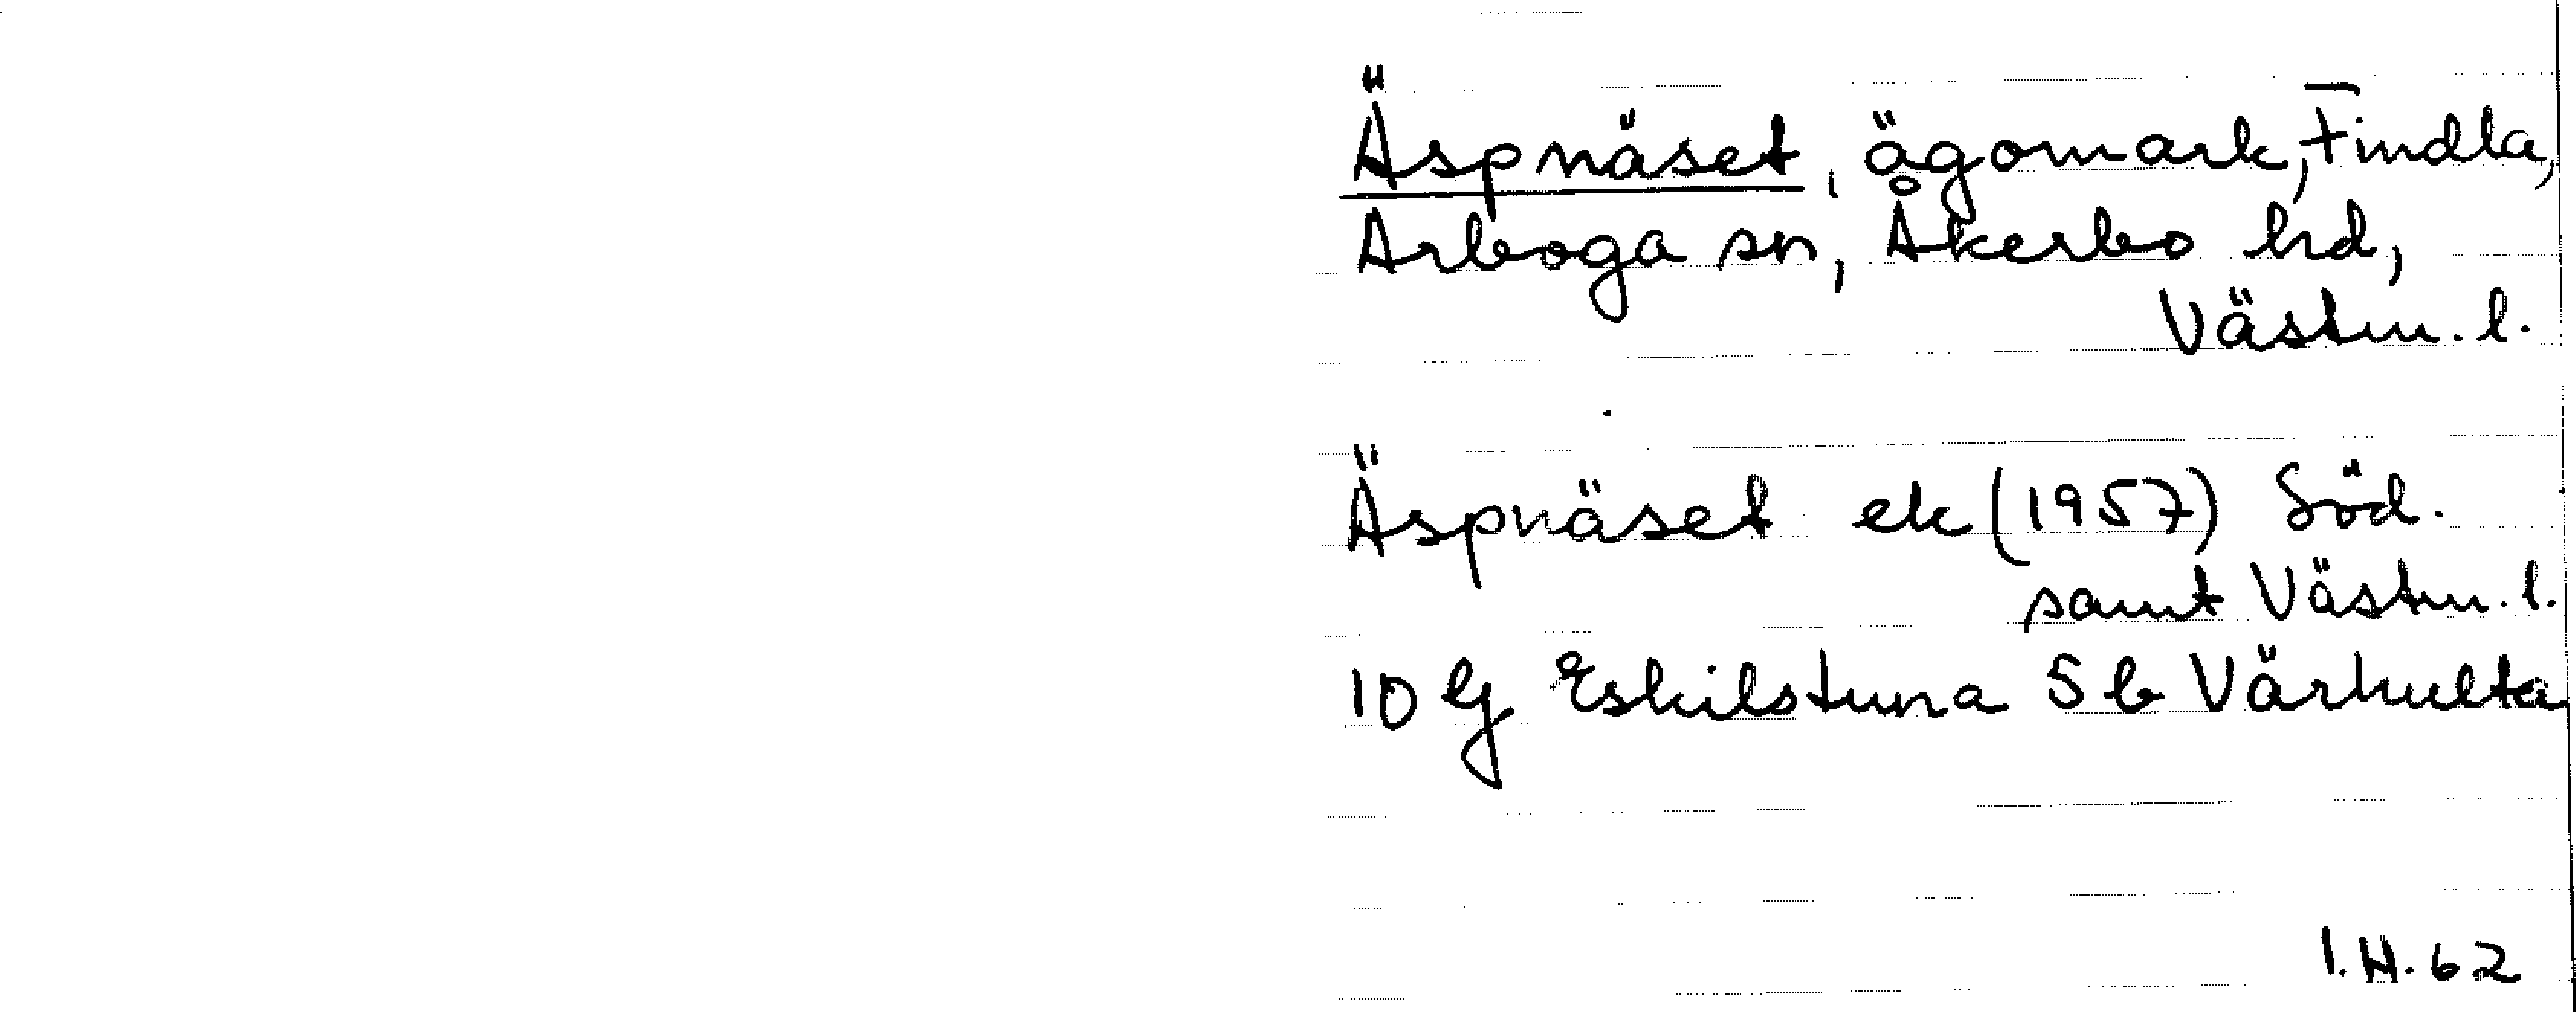 Äspnäset, ägomark, Findla,
Arboga sn, Åkerbo hd,
Västm. l.
Äspnäset ek (1957) Söd.
samt Västm. l.
10 G Eskilstuna 5 b Värhulta
I.H. 62